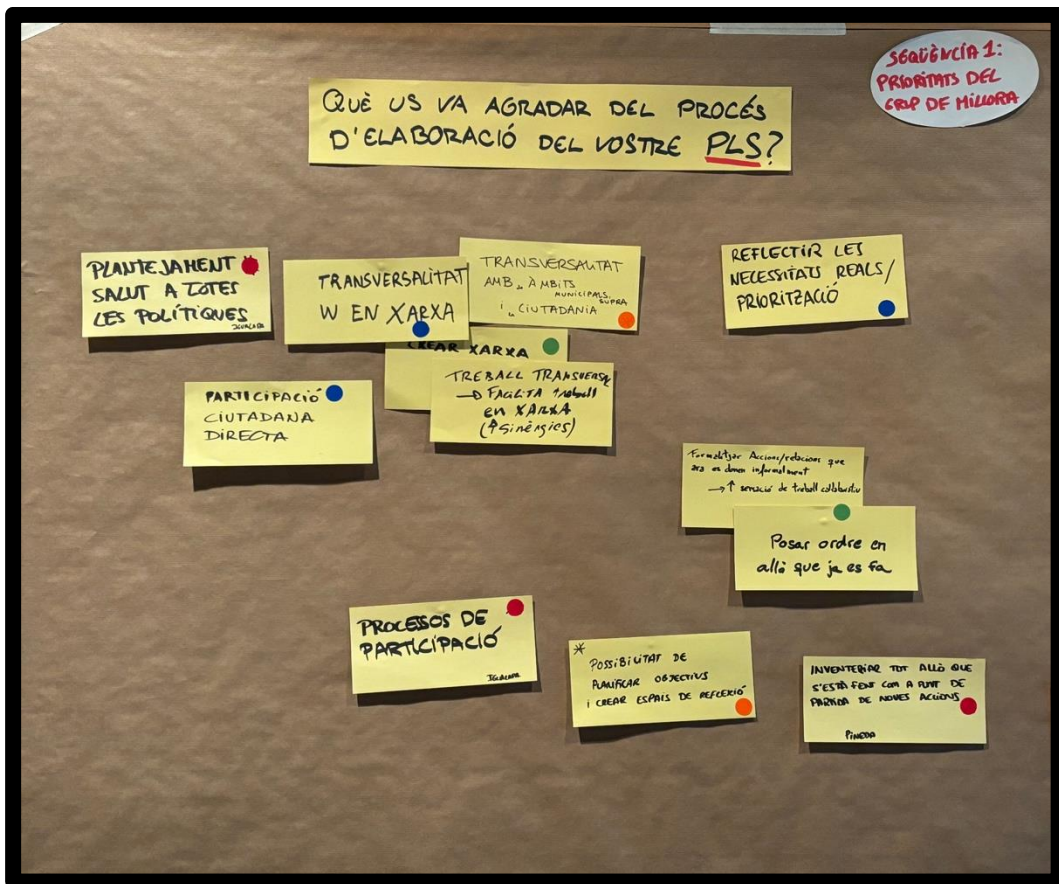 SEQÜÈNCIA 1:
PRIORITATS DEL
GRUP DE MILLORA
QUÈ US VA AGRADAR DEL PROCÉS
D'ELABORACIÓ DEL VOSTRE PLS?
PLANTEJAMENT
SALUT A TOTES
LES POLÍTIQUES
IGUALADA
TRANSVERSALITAT
W EN XARXA
TRANSVERSALITAT
AMB "ÀMBITS
MUNICIPALS, SUPRA
i " CIUTADANIA
REFLECTIR LES
NECESSITATS REALS/
PRIORITZACIÓ
CREAR XARXA
TREBALL TRANSVERSAL
→ FACILITA treball
en XARXA
(↑Sinèrgies)
PARTICIPACIÓ
CIUTADANA
DIRECTA
Formalitzar Accions/relacions que
ara es donen informalment
→ ↑ sensació de treball col·laboratiu
Posar ordre en
allò que ja es fa
PROCESSOS DE
PARTICIPACIÓ
IGUALADA
* POSSIBILITAT DE
PLANIFICAR OBJECTIUS
i CREAR ESPAIS DE REFLEXIÓ
INVENTERIAR TOT ALLÒ QUE
S'ESTÀ FENT COM A PUNT DE
PARTIDA DE NOVES ACCIONS
PINEDA